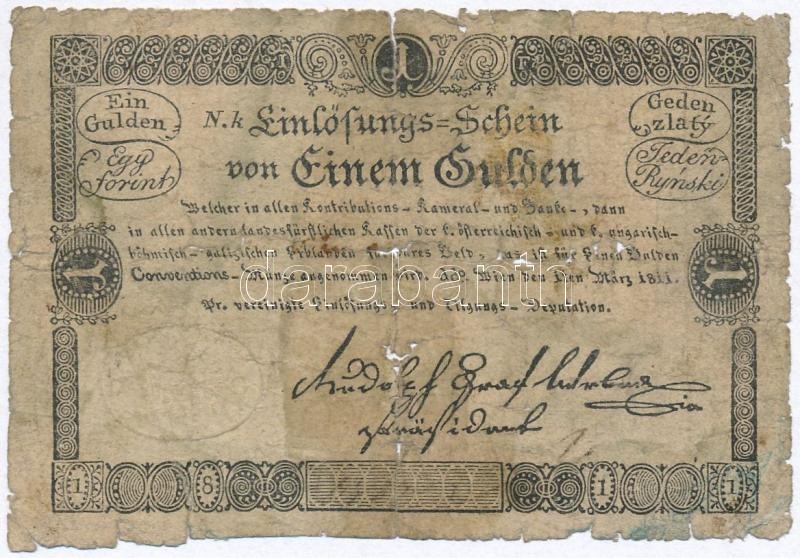 I 1 F
Ein
Gulden
Egy
forint
Geden
zlatý
Jeden
Ryński
N.k Einlösungs=Schein
von Einem Gulden
Welcher in allen Kontributions- Kameral- und Banko-, dann
in allen andern landesfürstlichen Kassen der k. österreichisch- und k. ungarisch-
böhmisch- galizischen Erblanden für bares Geld, das ist für Einen Gulden
Conventions-Münze angenommen wird. Wien den 1ten März 1811.
Pr. vereinigte Einlösungs- und Tilgungs-Deputation.
1 1
Rudolph Graf
Präsident
1 8 1 1
darabanth